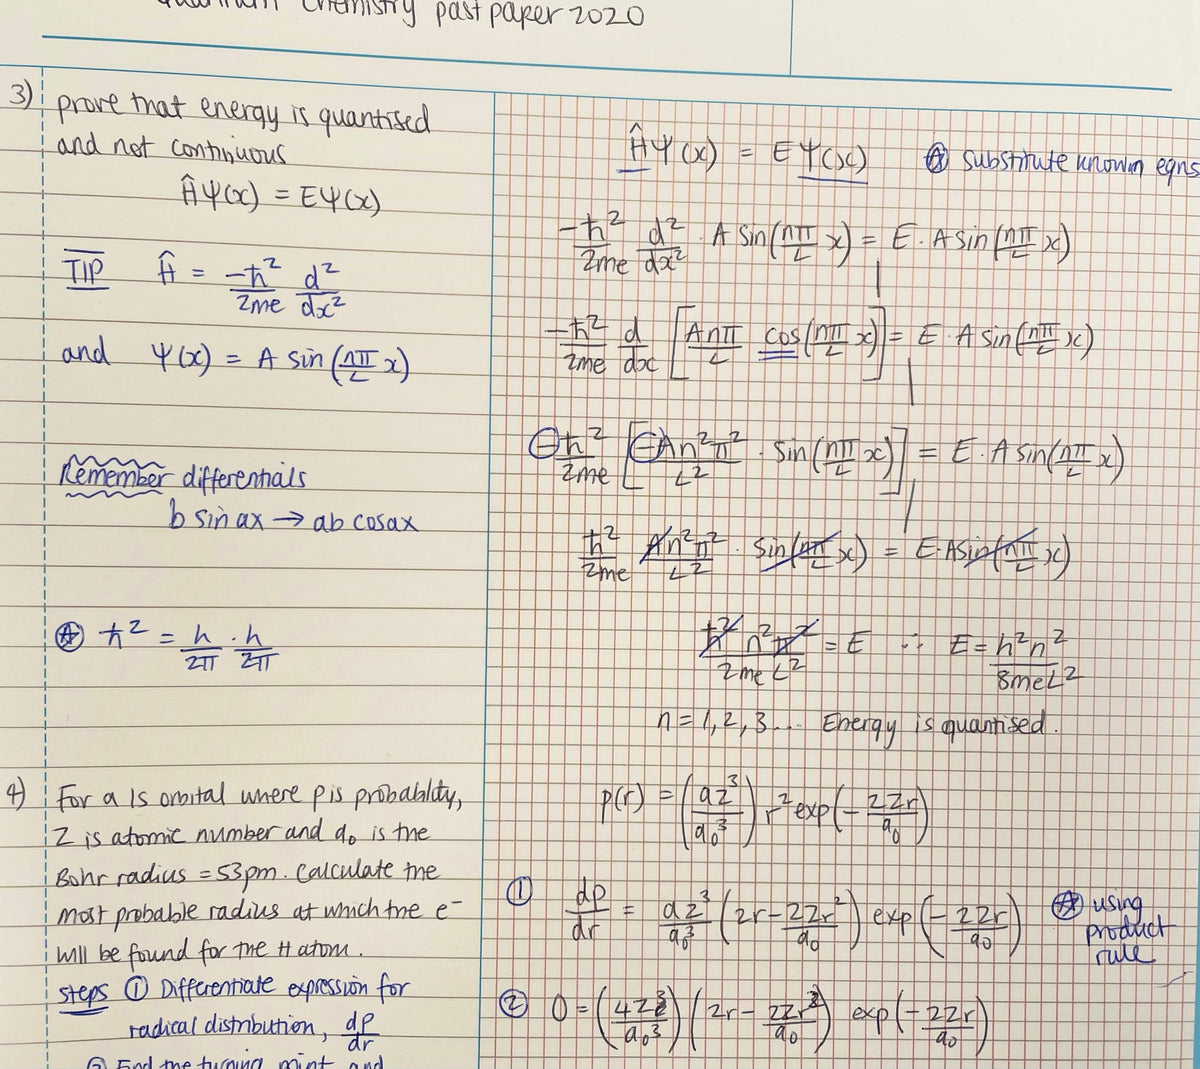 Quantum Chemistry past paper 2020
3) prove that energy is quantised
and not continuous
Ĥψ(x) = Eψ(x)
TIP Ĥ = -ħ²/2me d²/dx²
and ψ(x) = A sin(nπ/L x)
Remember differentials
b sin ax → ab cosax
⍟ ħ² = h/2π · h/2π
Ĥψ(x) = Eψ(x) ⍟ substitute known eqns
-ħ²/2me d²/dx² · A sin(nπ/L x) = E · A sin(nπ/L x)
-ħ²/2me d/dx [Anπ/L cos(nπ/L x)] = E · A sin(nπ/L x)
-ħ²/2me [-An²π²/L² · sin(nπ/L x)] = E · A sin(nπ/L x)
ħ²/2me An²π²/L² · sin(nπ/L x) = E·A sin(nπ/L x)
ħ²n²π²/2meL² = E ∴ E = h²n²/8meL²
n = 1, 2, 3... Energy is quantised.
4) For a 1s orbital where p is probabldty,
Z is atomic number and a₀ is the
Bohr radius = 53pm. Calculate the
most probable radius at which the e⁻
will be found for the H atom.
steps ① Differentiate expression for
radical distribution, dp/dr
② Find the turning point and
p(r) = (az³/a₀³) r² exp(-2Zr/a₀)
① dp/dr = az³/a₀³ (2r - 2Zr²/a₀) exp(-2Zr/a₀) ⍟ using
product
rule
② 0 = (4Z³/a₀³) (2r - 2Zr²/a₀) exp(-2Zr/a₀)